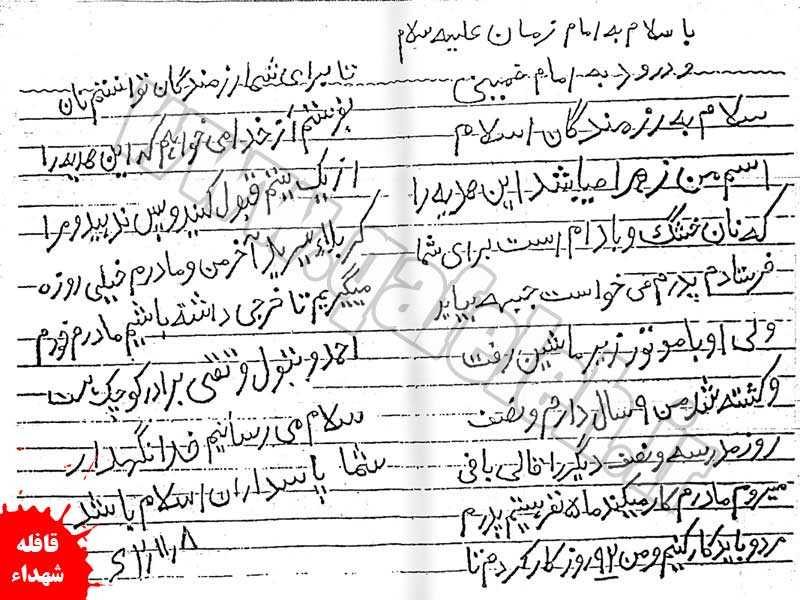 با سلام به امام زمان علیه سلام
و درود به امام خمینی
سلام به رزمندگان اسلام
اسم من زهرا میباشد این هدیه را
که نان خشگ و بادام است برای شما
فرستادم پدرم می خواست جبهه بیاید
ولی او با موتور زیر ماشین رفت
و کشته شد من ۹ سال دارم و نصف
روز مدرسه و نصف دیگر را قالی بافی
میروم مادرم کار میکند ما ۵ نفر هستیم پدرم
مرد و باید کار کنیم و من ۹۲ روز کار کردم تا
تا برای شما رزمندگان توانستم نان
بفرستم از خدا می خواهم که این هدیه را
از یک یتیم قبول کنید و پس ندهید و مرا
کربلا ببرید آخر من و مادرم خیلی روزه
میگیریم تا خرجی داشته باشیم مادرم خودم
احمد و بتول و تقی برادر کوچک
سلام می رسانیم خدا نگهدار
شما پاسداران اسلام باشد
۶۲٫۱۱٫۸
www.qafeleh.ir
قافله
شهداء